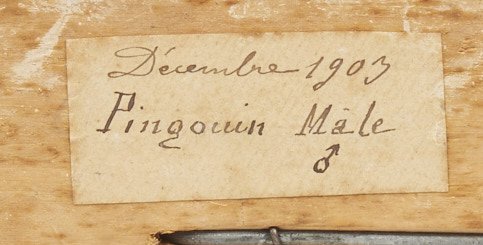 Décembre 1903
Pingouin Mâle
♂